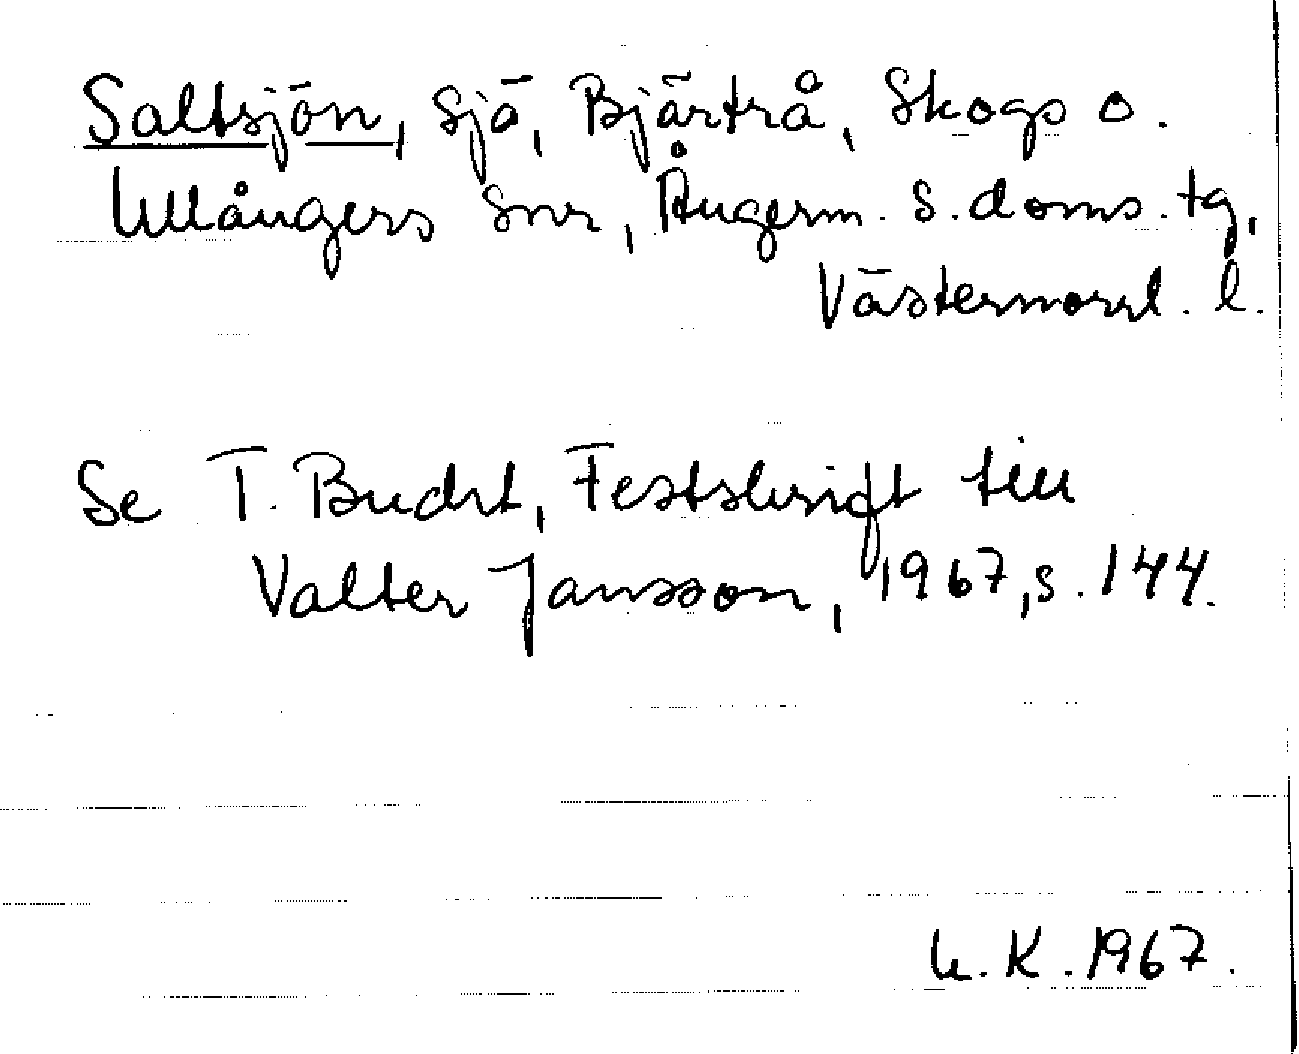 Saltsjön, sjö, Bjärtrå, Skogs o.
Ullångers snr, Ångerm. s. doms. tg,
Västernorrl. l.
Se T. Bucht, Festskrift till
Valter Jansson, 1967, s. 144.
U. K. 1967.